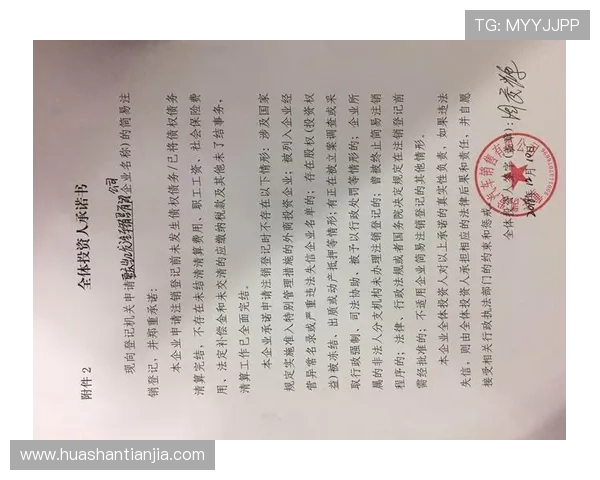 TG: MYYJJPP
附件2
全体投资人承诺书
现向登记机关申请
公司
(企业名称)的简易注
销登记,并郑重承诺:
本企业申请注销登记前未发生债权债务/已将债权债务
清算完结,不存在未结清清算费用、职工工资、社会保险费
用、法定补偿金和未交清的应缴纳税款及其他未了结事务,
清算工作已全面完结。
本企业承诺申请注销登记时不存在以下情形:涉及国家
规定实施准入特别管理措施的外商投资企业;被列入企业经
营异常名录或严重违法失信企业名单的;存在股权(投资权
益)被冻结、出质或动产抵押等情形;有正在被立案调查或采
取行政强制、司法协助、被予以行政处罚等情形的;企业所
属的非法人分支机构未办理注销登记的;曾被终止简易注销
程序的;法律、行政法规或者国务院决定规定在注销登记前
需经批准的;不适用企业简易注销登记的其他情形。
本企业全体投资人对以上承诺的真实性负责,如果违法
失信,则由全体投资人承担相应的法律后果和责任,并自愿
接受相关行政执法部门的约束和惩戒。
全体投资人签字(盖章):
www.huashantianjia.com